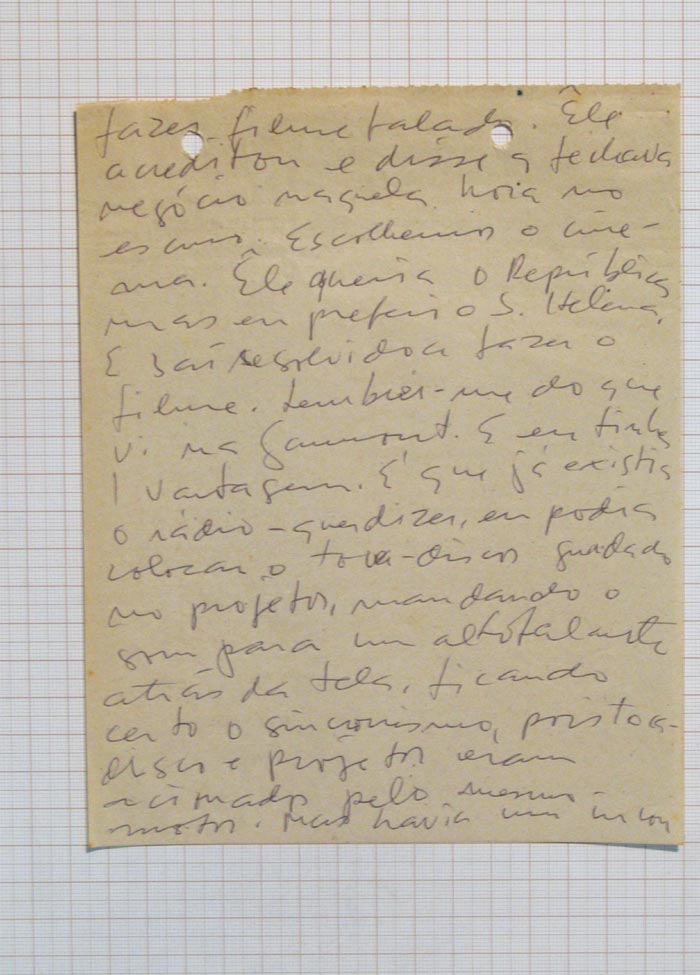 fazer filme falado. Êle
acreditou e disse q fechava
negócio naquela hora no
escuro. Escolhemos o cine-
ma. Êle queria o República
mas eu preferi o S. Helena.
E saí resolvido a fazer o
filme. Lembrei-me do que
vi na Gaumont. E eu tinha
1 vantagem. É que já existia
o rádio - quer dizer, eu podia
colocar o toca-discos
no projetor, mandando o
som para um altofalante
atrás da tela, ficando
certo o sincronismo, pois toca-
disco e projetor eram
acionados pelo mesmo
motor. Mas havia um